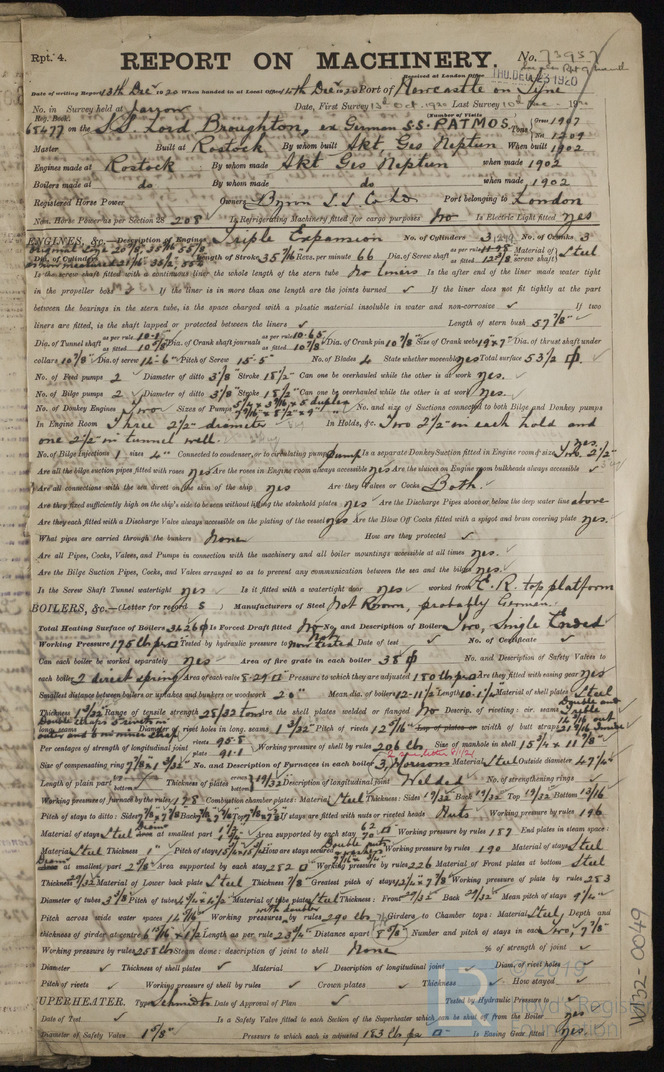 Rpt. 4.
REPORT ON MACHINERY.
No. 73957
Received at London Office THU. DEC. 23 1920
Date of writing Report 13th Decr 1920 When handed in at Local Office 15th Decr 1920 Port of Newcastle on Tyne
No. in Survey held at Jarrow Date, First Survey 13th Oct. 1920 Last Survey 10th Dec. 19
Reg. Book. (Number of Visits
65477 on the S.S. Lord Broughton, ex German S.S. PATMOS Tons Gross 1907
Net 1209
Master Built at Rostock By whom built Akt Ges Neptun When built 1902
Engines made at Rostock By whom made Akt Ges Neptun when made 1902
Boilers made at do By whom made do when made 1902
Registered Horse Power Owners Byron S.S. Co Ld Port belonging to London
Nom. Horse Power as per Section 28 208 Is Refrigerating Machinery fitted for cargo purposes No Is Electric Light fitted yes
ENGINES, &c.—Description of Engines Triple Expansion No. of Cylinders 3 No. of Cranks 3
Dia. of Cylinders Length of Stroke 35 7/16 Revs. per minute 66 Dia. of Screw shaft as per rule as fitted 12 3/8 Material of screw shaft) Steel
Is the screw shaft fitted with a continuous liner the whole length of the stern tube No liners Is the after end of the liner made water tight
in the propeller boss If the liner is in more than one length are the joints burned ✓ If the liner does not fit tightly at the part
between the bearings in the stern tube, is the space charged with a plastic material insoluble in water and non-corrosive ✓ If two
liners are fitted, is the shaft lapped or protected between the liners ✓ Length of stern bush 57 7/8"
Dia. of Tunnel shaft as per rule 10.15 as fitted 10 5/8 Dia. of Crank shaft journals as per rule 10.65 as fitted 10 7/8 Dia. of Crank pin 10 7/8" Size of Crank webs 19 x 7" Dia. of thrust shaft under
collars 10 7/8" Dia. of screw 14'-6" Pitch of Screw 15.5 No. of Blades 4 State whether moveable yes Total surface 53.2
No. of Feed pumps 2 Diameter of ditto 3 1/8" Stroke 18 1/2" Can one be overhauled while the other is at work yes.
No. of Bilge pumps 2 Diameter of ditto 3 1/8" Stroke 18 1/2" Can one be overhauled while the other is at work yes.
No. of Donkey Engines Two Sizes of Pumps No. and size of Suctions connected to both Bilge and Donkey pumps
In Engine Room Three 2 1/2" diameter In Holds, &c. Two 2 1/2" in each hold and
one 2 1/2" in tunnel well.
No. of Bilge Injections 1 sizes 4" Connected to condenser, or to circulating pump pump Is a separate Donkey Suction fitted in Engine room & size yes. Two 2 1/2"
Are all the bilge suction pipes fitted with roses yes Are the roses in Engine room always accessible yes Are the sluices on Engine room bulkheads always accessible ✓
Are all connections with the sea direct on the skin of the ship yes Are they Valves or Cocks Both.
Are they fixed sufficiently high on the ship's side to be seen without lifting the stokehold plates yes Are the Discharge Pipes above or below the deep water line above
Are they each fitted with a Discharge Valve always accessible on the plating of the vessel yes Are the Blow Off Cocks fitted with a spigot and brass covering plate yes.
What pipes are carried through the bunkers None How are they protected ✓
Are all Pipes, Cocks, Valves, and Pumps in connection with the machinery and all boiler mountings accessible at all times yes.
Are the Bilge Suction Pipes, Cocks, and Valves arranged so as to prevent any communication between the sea and the bilges yes.
Is the Screw Shaft Tunnel watertight yes Is it fitted with a watertight door yes worked from E.R. top platform
BOILERS, &c.—(Letter for record S ) Manufacturers of Steel Not known, probably German.
Total Heating Surface of Boilers 3426 Is Forced Draft fitted No No. and Description of Boilers Two, Single Ended
Working Pressure 175 lbs Tested by hydraulic pressure to Not now tested Date of test ✓ No. of Certificate ✓
Can each boiler be worked separately yes Area of fire grate in each boiler 38 No. and Description of Safety Valves to
each boiler 2 direct spring Area of each valve 8.29 Pressure to which they are adjusted 180 lbs Are they fitted with easing gear yes
Smallest distance between boilers or uptakes and bunkers or woodwork 20" Mean dia. of boilers 12-11 1/2" Length 10-1 Material of shell plates Steel
Thickness 1 3/32 Range of tensile strength 28/32 tons Are the shell plates welded or flanged No Descrip. of riveting: cir. seams Double and Treble
long. seams Diameter of rivet holes in long. seams 1 3/32 Pitch of rivets 12 5/16" Lap of plates or width of butt straps
Per centages of strength of longitudinal joint rivets 95.8 plate 91.1 Working pressure of shell by rules 206 lbs Size of manhole in shell 15 3/4 x 11 7/8
Size of compensating ring No. and Description of Furnaces in each boiler 3, Morisons Material Steel Outside diameter 47 1/4
Length of plain part top bottom Thickness of plates crown bottom 19/32 Description of longitudinal joint Welded No. of strengthening rings ✓
Working pressure of furnace by the rules 178 Combustion chamber plates: Material Steel Thickness: Sides 19/32 Back 19/32 Top 19/32 Bottom 13/16
Pitch of stays to ditto: Sides Back Top If stays are fitted with nuts or riveted heads Nuts Working pressure by rules 196
Material of stays Steel Diam at smallest part Area supported by each stay Working pressure by rules 187 End plates in steam space:
Material Steel Thickness 1" Pitch of stays How are stays secured Working pressure by rules 190 Material of stays Steel
Diam at smallest part 2 7/8" Area supported by each stay 252 Working pressure by rules 226 Material of Front plates at bottom Steel
Thickness 29/32 Material of Lower back plate Steel Thickness 7/8" Greatest pitch of stays Working pressure of plate by rules 253
Diameter of tubes 3 1/8" Pitch of tubes Material of tube plates Steel Thickness: Front Back Mean pitch of stays 9 1/4"
Pitch across wide water spaces 14 7/16" Working pressures by rules 290 lbs Girders to Chamber tops: Material Steel Depth and
thickness of girder at centre Length as per rule 23 3/4" Distance apart Number and pitch of stays in each Two, 7 7/8"
Working pressure by rules 258 lb Steam dome: description of joint to shell None % of strength of joint ✓
Diameter ✓ Thickness of shell plates ✓ Material ✓ Description of longitudinal joint Diam. of rivet holes ✓
Pitch of rivets ✓ Working pressure of shell by rules ✓ Crown plates ✓ Thickness ✓ How stayed ✓
SUPERHEATER. Type Schmidts Date of Approval of Plan ✓ Tested by Hydraulic Pressure to ✓
Date of Test ✓ Is a Safety Valve fitted to each Section of the Superheater which can be shut off from the Boiler yes
Diameter of Safety Valve 1 5/8" Pressure to which each is adjusted 183 lbs Is Easing Gear fitted yes.
© 2019
Lloyd's Register
Foundation
W132-0049